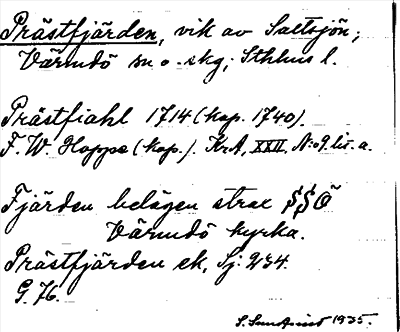 Prästfjärden, vik av Saltsjön;
Värmdö sn o. skg; Sthlms l.
Prästfiahl 1714 (kop. 1740).
F. W. Hoppe (kop.). KrA, XXII, N:o 9 lit. a.
Fjärden belägen strax SSÖ
Värmdö kyrka.
Prästfjärden ek, Sj: 234.
G. 76.
S. Sundqvist 1935.